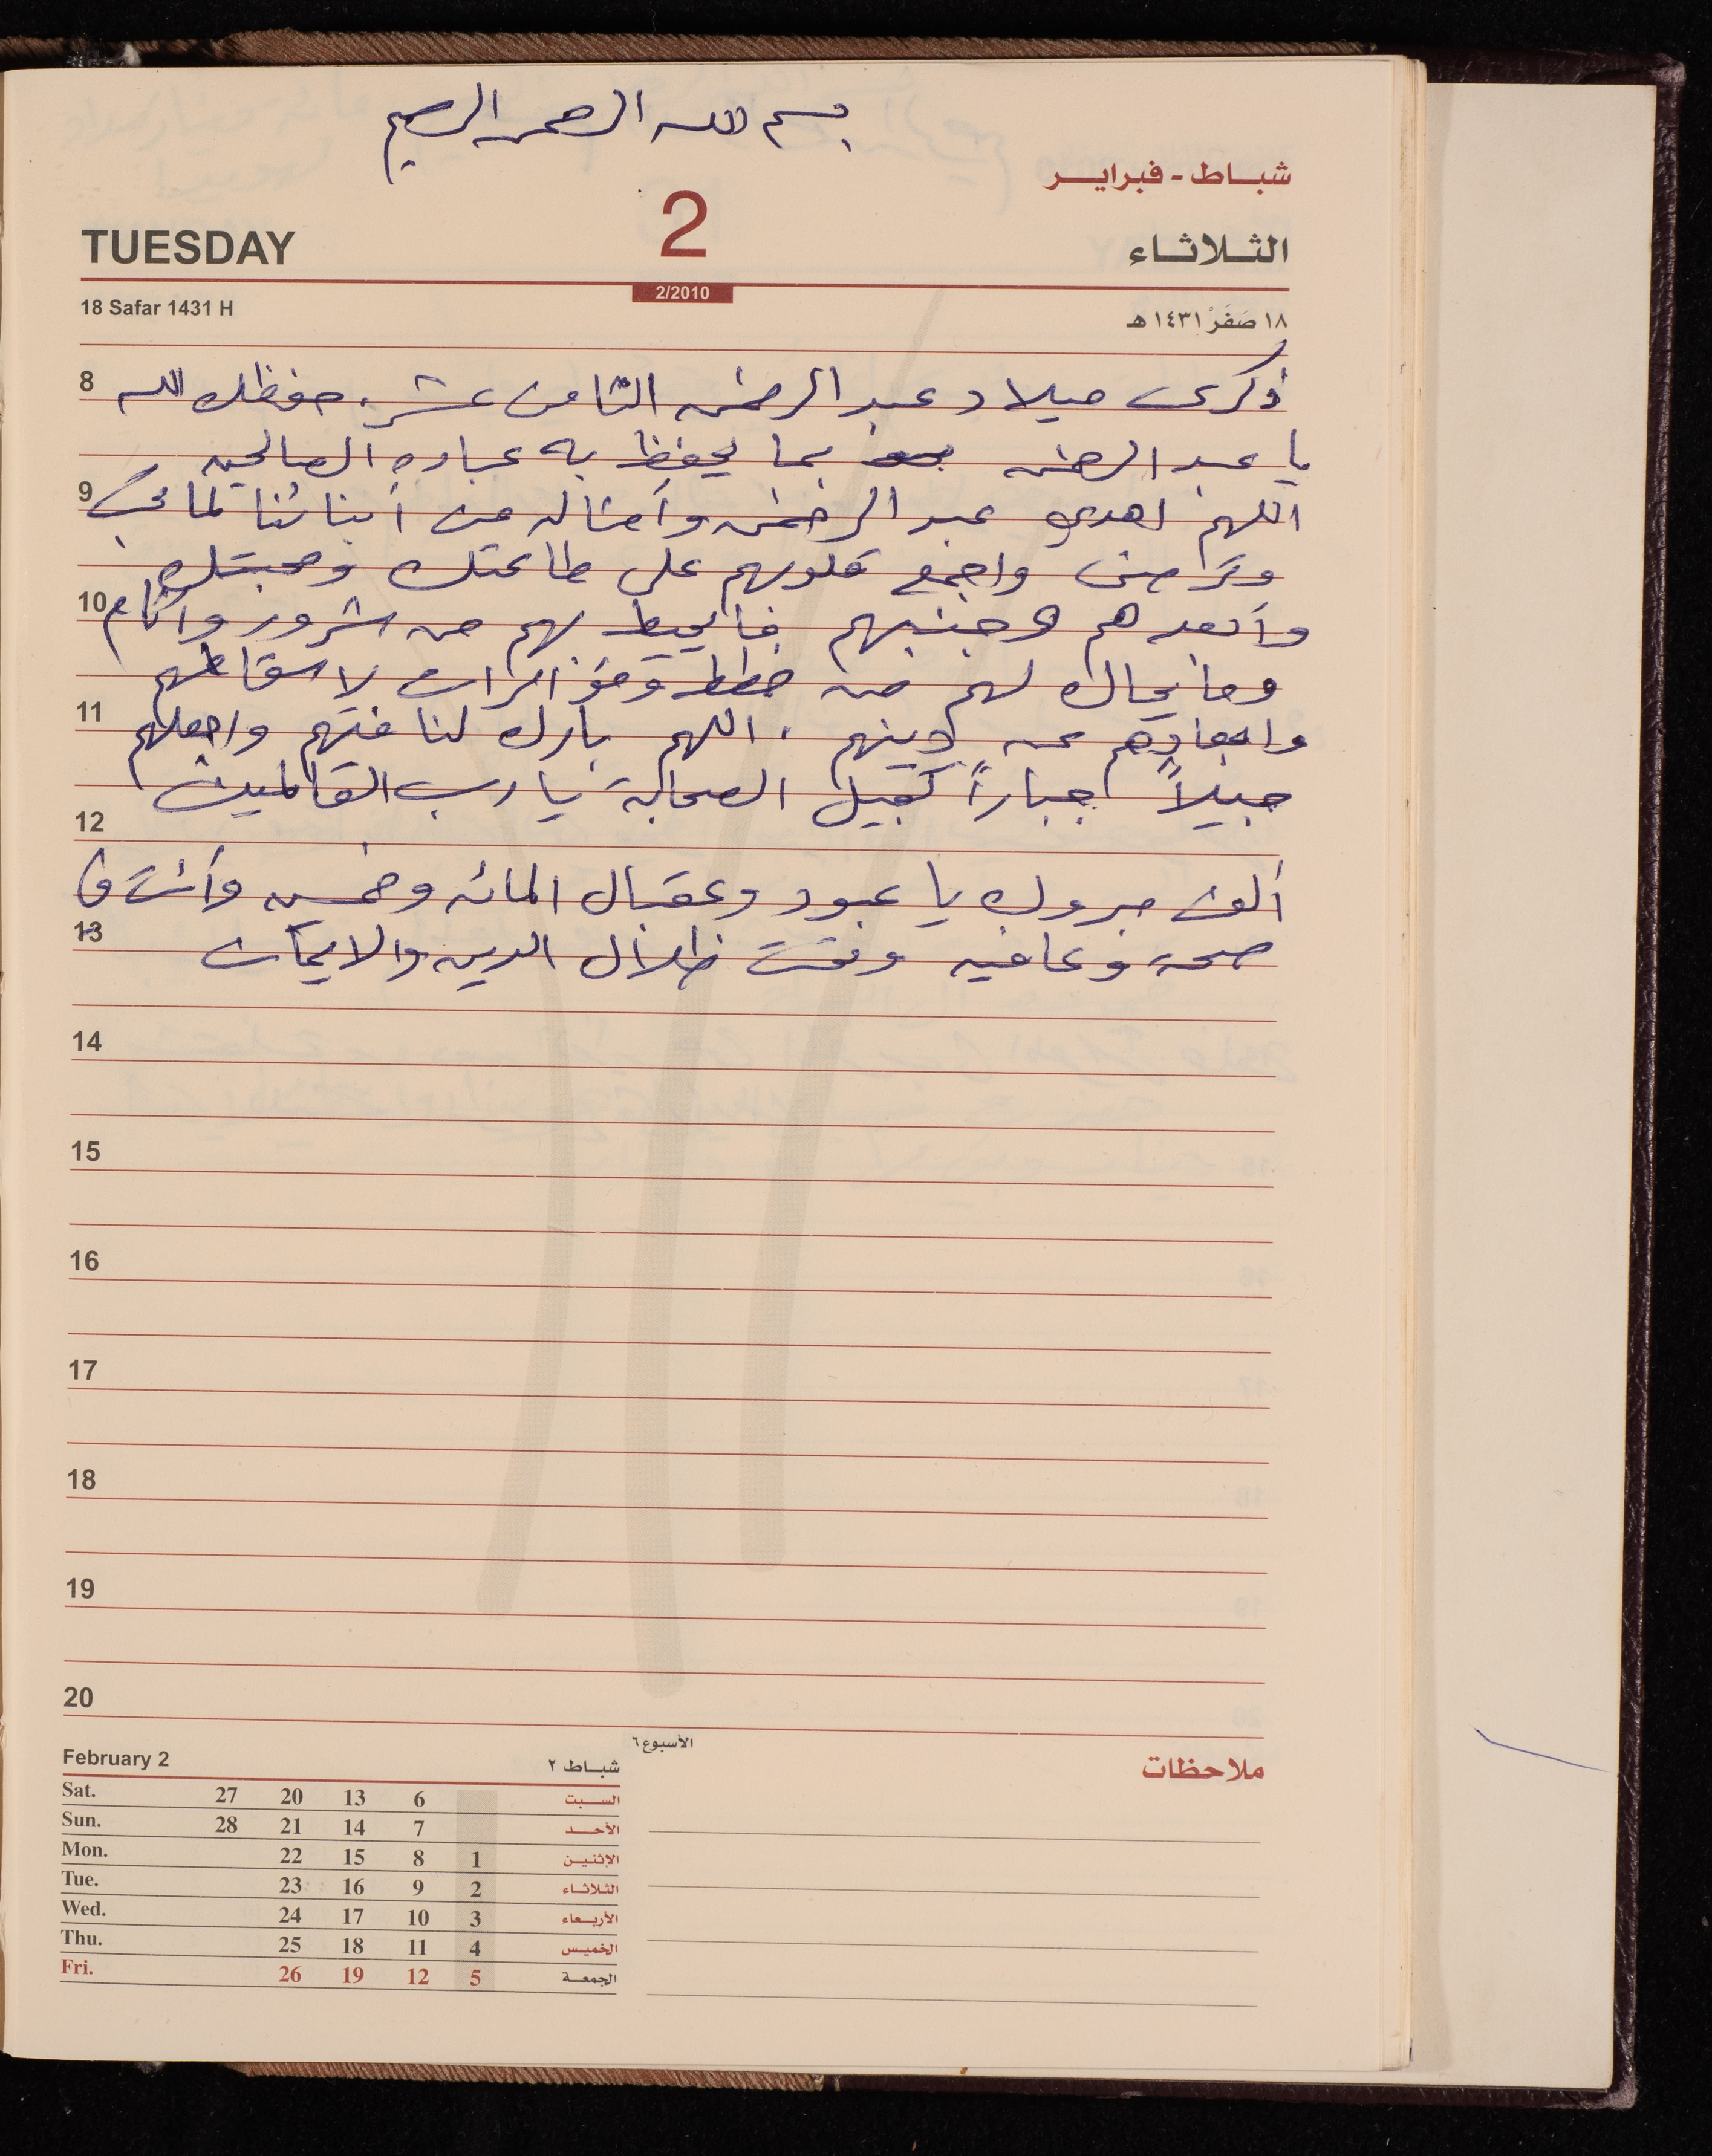 بسم الله الرحمن الرحيم
شباط - فبراير
TUESDAY 2 الثلاثاء
2/2010
18 Safar 1431 H ١٨ صَفَرْ ١٤٣١ هـ
8 ذكرى ميلاد عبد الرحمن الثامن عشر. حفظك الله
يا عبد الرحمن بما يحفظ به عباده الصالحين
9 اللهم اهدي عبد الرحمن وأمثاله من أبنائنا لما تحب
وترضى واجمع قلوبهم على طاعتك ومحبتك
10 وأبعدهم وجنبهم ما يحيط بهم من شرور وآثام
وما يحاك لهم من خطط ومؤامرات لاسقاطهم
11 وابعادهم عن دينهم . اللهم بارك لنا فيهم واجعلهم
جيلاً جباراً كجيل الصحابة يا رب العالمين
12
ألف مبروك يا عبود وعقبال المائه وخمسين وأنت في
13 صحة وعافيه وتحت ظلال الدين والايمان
14
15
16
17
18
19
20
February 2 شباط ٢ الأسبوع ٦
ملاحظات
Sat. 27 20 13 6 السبت
Sun. 28 21 14 7 الأحد
Mon. 22 15 8 1 الإثنين
Tue. 23 16 9 2 الثلاثاء
Wed. 24 17 10 3 الأربعاء
Thu. 25 18 11 4 الخميس
Fri. 26 19 12 5 الجمعة